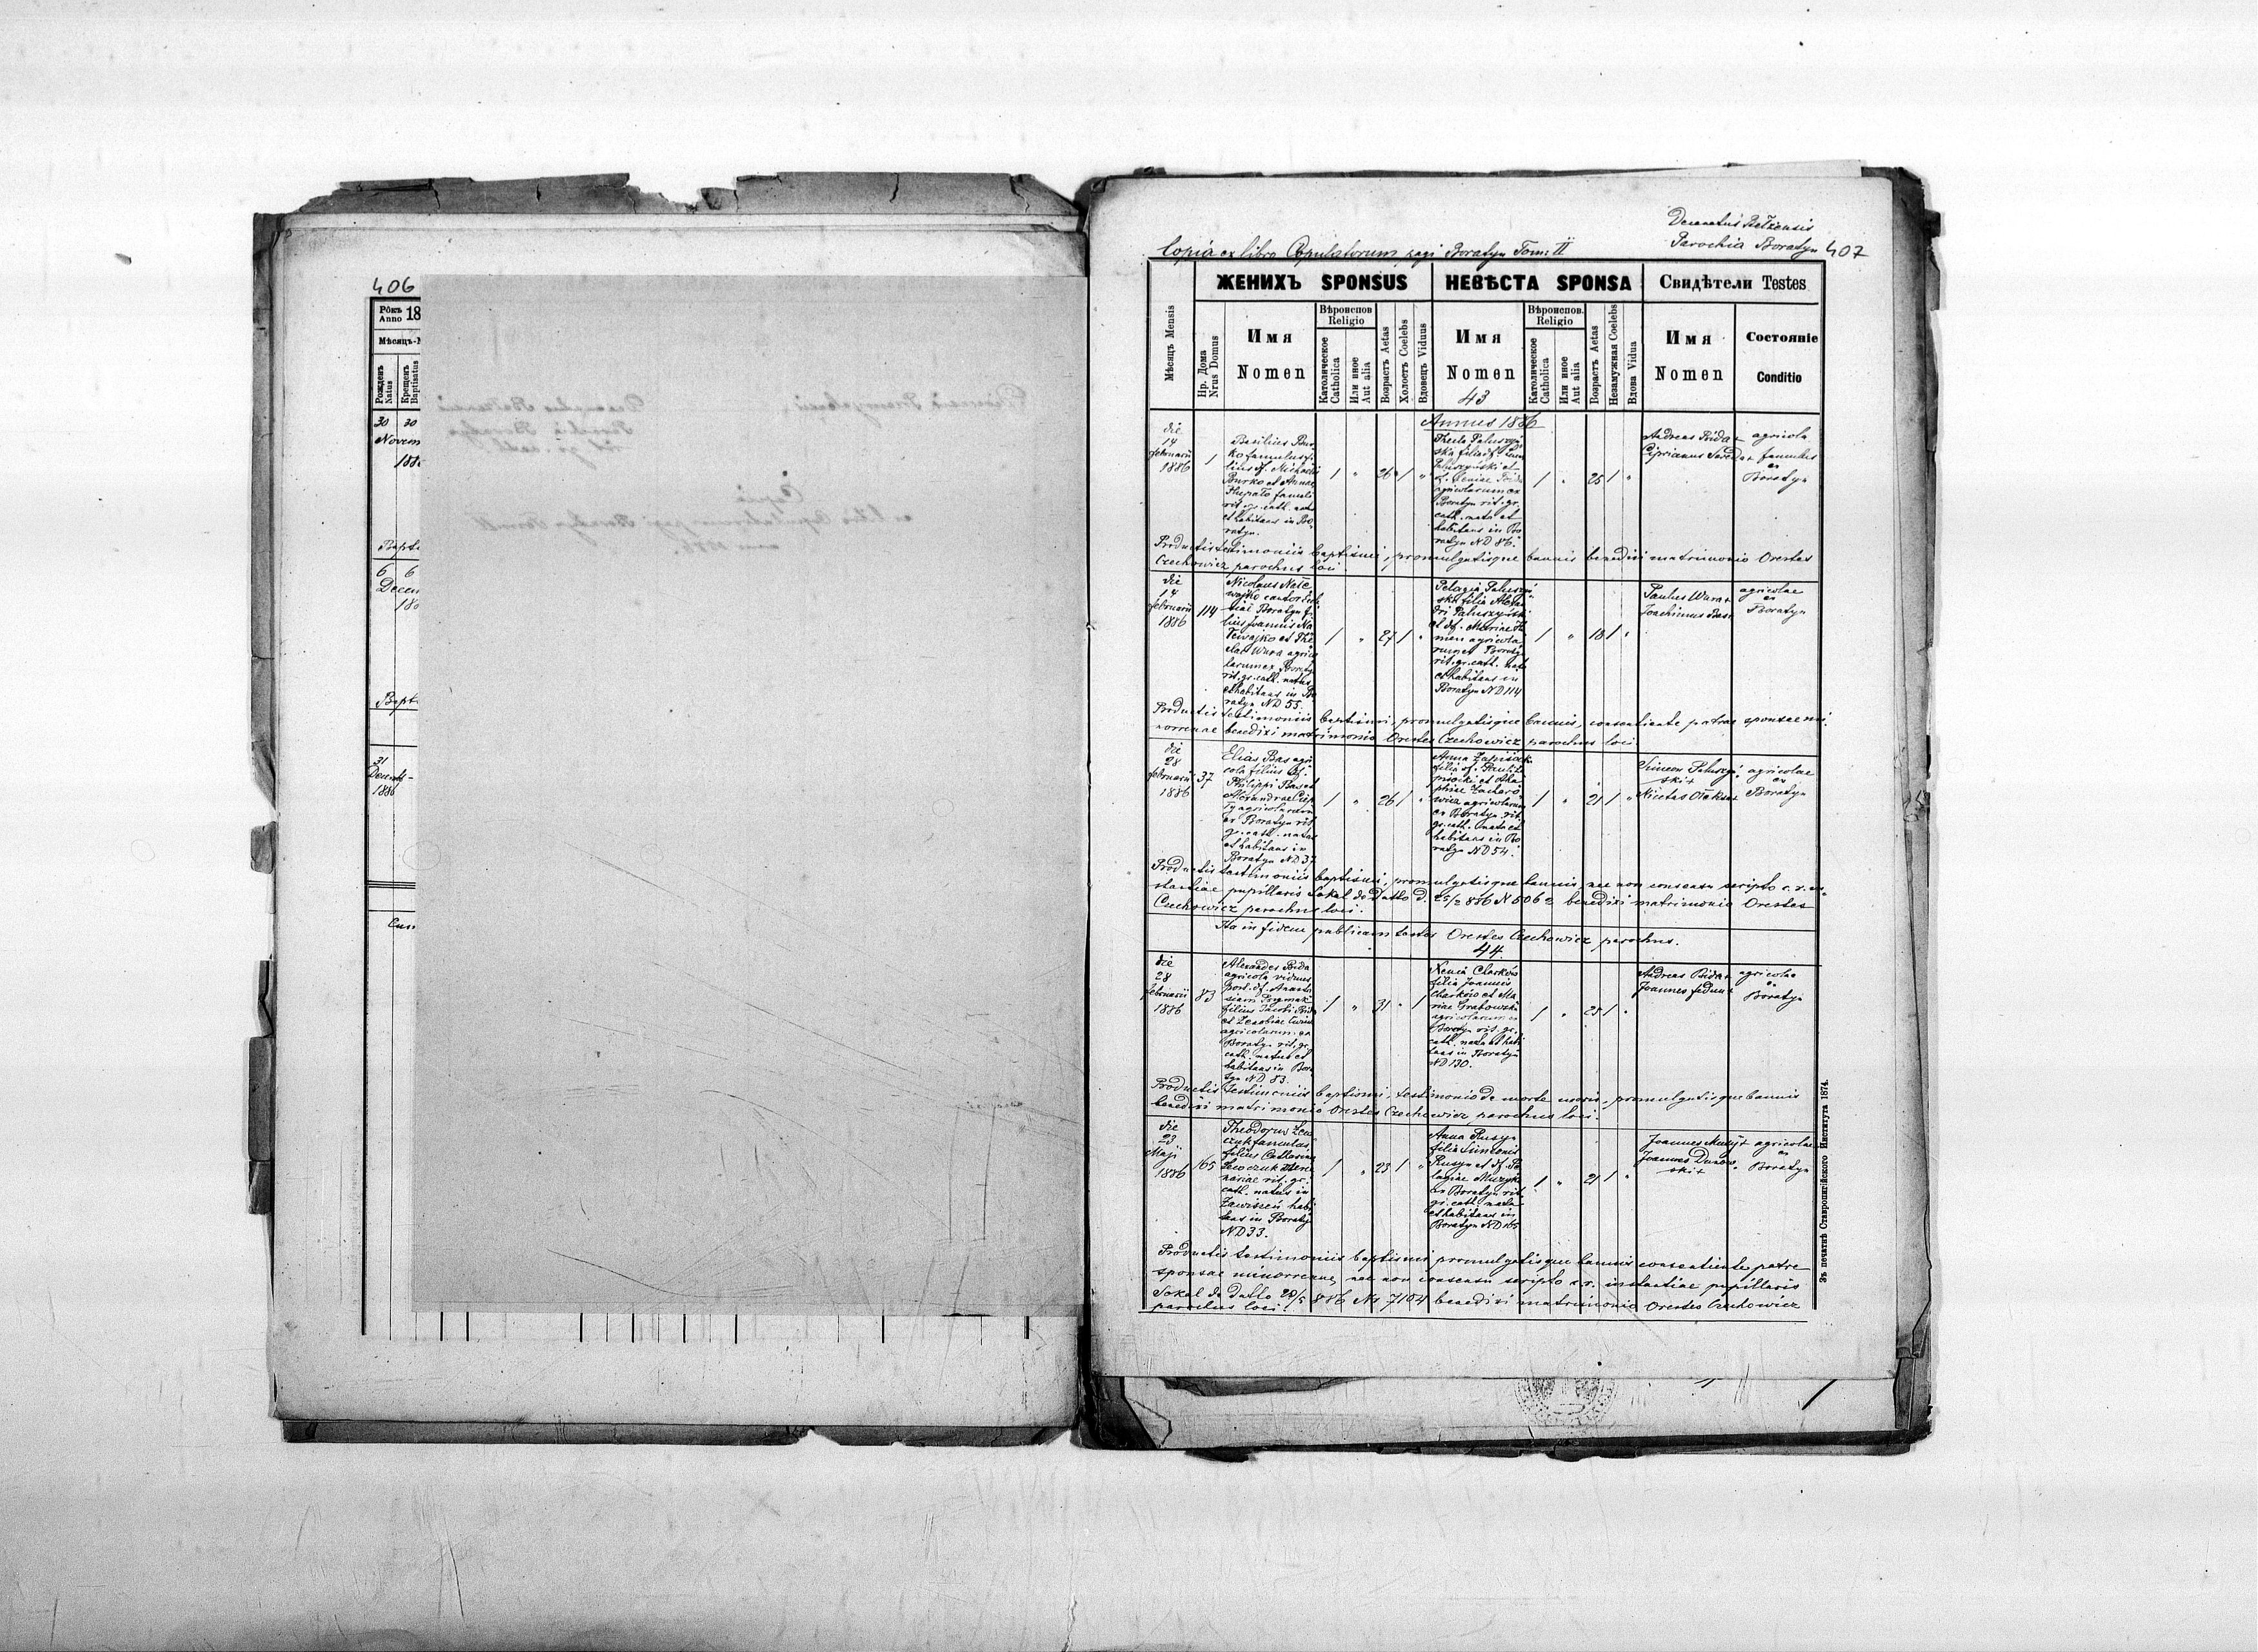 406
Рôкъ
Anno 18
Мѣсяцъ-М
Рожденъ
Natus
Крещенъ
Baptisatus
30 30
Novem
188
Bapt
6 6
Decem
188
Bapt
31
Decemb-
1886
Decanatus Belzensis
Parochia Boratyn 407
Copia ex libro Copulatorum pagi Boratyn Tom: II
Мѣсяцъ Mensis
ЖЕНИХЪ SPONSUS
НЕВѢСТА SPONSA
Свидѣтели Testes
Нр. Дома
Nrus Domus
Имя
Nomen
Вѣроиспов.
Religio
Католическое
Catholica
Или иное
Aut alia
Возрастъ Aetas
Холостъ Coelebs
Вдовецъ Viduus
Имя
Nomen
43
Вѣроиспов.
Religio
Католическое
Catholica
Или иное
Aut alia
Возрастъ Aetas
Незамужная Coelebs
Вдова Vidua
Имя
Nomen
Состояніе
Conditio
Annus 1886
die
14
februarii
1886
1
Basilius Bur
ko famulus fi
lius df. Michaelis
Burko et Annae
famuli
rit. gr. cath. natus
et habitans in Bo
ratyn.
1 " 26 1 "
Thecla Paluszyń
ska filia df.
Paluszyński et
agricolarum ex
Boratyn rit. gr.
cath. nata et
habitans in Bo
ratyn ND 86.
1 " 25 1 "
Andreas Bida +
Ciprianus
agricola
famulus
ex
Boratyn
Productis testimoniis baptismi, promulgatisque bannis benedixi matrimonio Orestes
Czechowicz parochus loci.
die
14
februarii
1886
114
Nicolaus
cantor
Boratyn fi
lius Joannis Na
et The
clae Wura agrico
larum ex Boratyn
rit. gr. cath. natus
et habitans in Bo
ratyn ND 55.
1 " 27 1 "
Pelagia Paluszyń
ska filia Alexan
dri Paluszyński
et df. Mariae
agricola
rum ex Boratyn
rit. gr. cath. nata
et habitans in
Boratyn ND 114
1 " 18 1 "
Paulus Wura +
Joachimus Bas +
agricolae
ex
Boratyn
Productis testimoniis baptismi, promulgatisque bannis, consentiente patre sponsae mi
norennae benedixi matrimonio Orestes Czechowicz parochus loci.
die
28
februarii
1886
37
Elias Bas agri
cola filius df.
Philippi Bas et
Alexandrae
agricolarum
ex Boratyn rit.
gr. cath. natus
et habitans in
Boratyn ND 37
1 " 26 1 "
Anna
filia df. Pauli
et Aga
phiae Zacharo
wicz agricolarum
ex Boratyn rit.
gr. cath. nata et
habitans in Bo
ratyn ND 54.
1 " 21 1 "
Simeon Paluszyń
ski +
Nicetas Oleksa +
agricolae
ex
Boratyn
Productis testimoniis baptismi, promulgatisque bannis, nec non consensu scripto c. r. in
stantiae pupillaris Sokal de Datto d. 25/2 886 N 5062 benedixi matrimonio Orestes
Czechowicz parochus loci.
Ita in fidem publicam testor Orestes Czechowicz parochus.
44
die
28
februarii
1886
83
Alexander Bida
agricola viduus
post. df. Anasta
siam
filius Jacobi Bida
et Zenobiae
agricolarum ex
Boratyn rit. gr.
cath. natus et
habitans in Bora
tyn ND 83.
1 " 31 " 1
Xenia Charków
filia Joannis
Charków et Ma
riae Grabowska
agricolarum ex
Boratyn rit. gr.
cath. nata et habi
tans in Boratyn
ND 130.
1 " 25 1 "
Andreas Bida +
Joannes Fedun +
agricolae
ex
Boratyn
Productis testimoniis baptismi, testimonio de morte uxoris, promulgatisque bannis
benedixi matrimonio Orestes Czechowicz parochus loci.
die
23
Maji
1886
165
Theodorus Lew
czuk famulus
filius Catharinae
Lewczuk
rit. gr.
cath. natus in
Zawiszeń habi
tans in Boratyn
ND 33.
1 " 23 1 "
Anna Rusyn
filia Simeonis
Rusyn et df. Pe
lagiae Muzyka
ex Boratyn rit.
gr. cath. nata
et habitans in
Boratyn ND 165
1 " 21 1 "
Joannes +
Joannes Dunow
ski +
agricolae
ex
Boratyn
Productis testimoniis baptismi promulgatisque bannis consentiente patre
sponsae minorennae, nec non consensu scripto c. r. instantiae pupillaris
Sokal de Datto 20/5 886 No 7104 benedixi matrimonio Orestes Czechowicz
parochus loci.
Зъ печатнѣ Ставропигійского Института 1874.